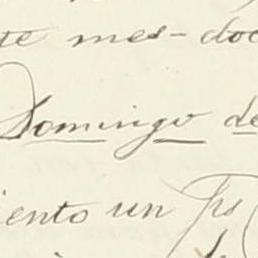 te mes - doc
Domingo de
iento un